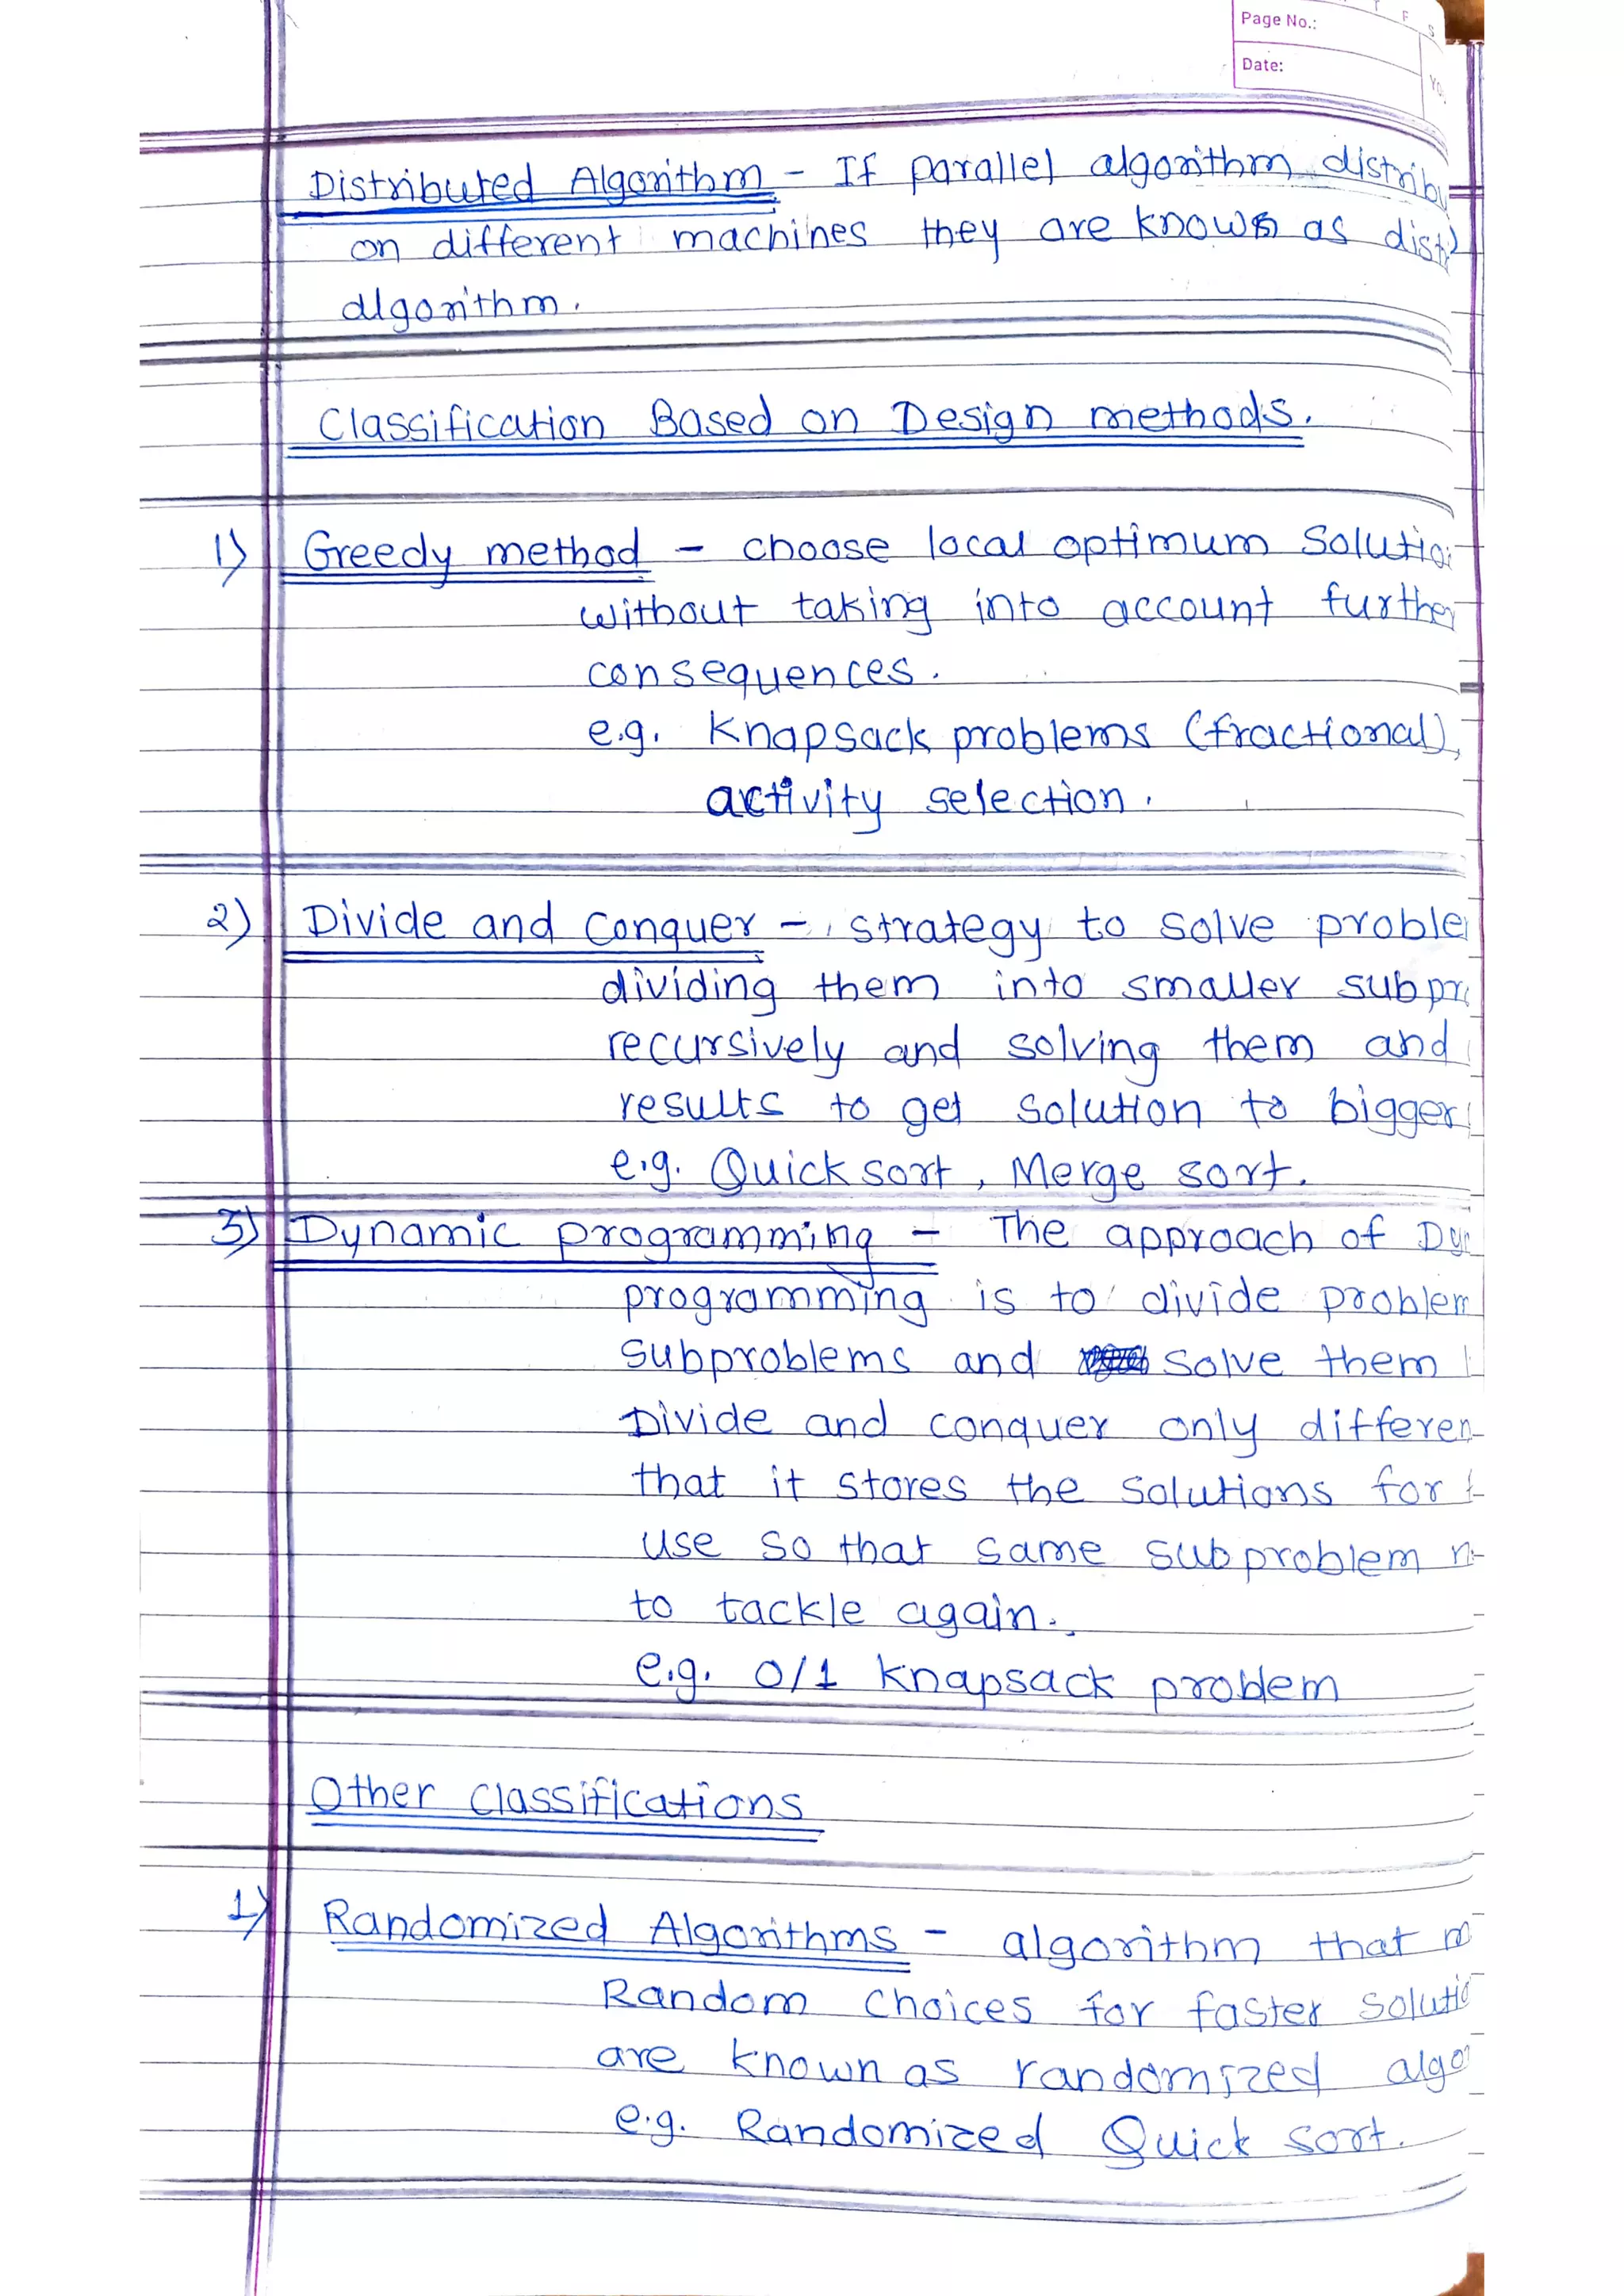 Page No.:
Date:
Distributed Algorithm - If parallel algorithm distribu
on different machines they are knows as dist
algorithm.
Classification Based on Design methods.
1) Greedy method - choose local optimum Solutio
without taking into account further
consequences.
e.g. Knapsack problems (fractional),
activity selection.
2) Divide and Conquer - strategy to solve proble
dividing them into smaller subpr
recursively and solving them and
results to get solution to bigger
e.g. Quick sort, Merge sort.
3) Dynamic programming - The approach of Dy
programming is to divide problem
Subproblems and solve them
Divide and conquer only differen
that it stores the solutions for
use so that same subproblem n
to tackle again.
e.g. 0/1 knapsack problem
Other classifications
1) Randomized Algorithms - algorithm that m
Random choices for faster solutio
are known as randomized algo
e.g. Randomized Quick sort.